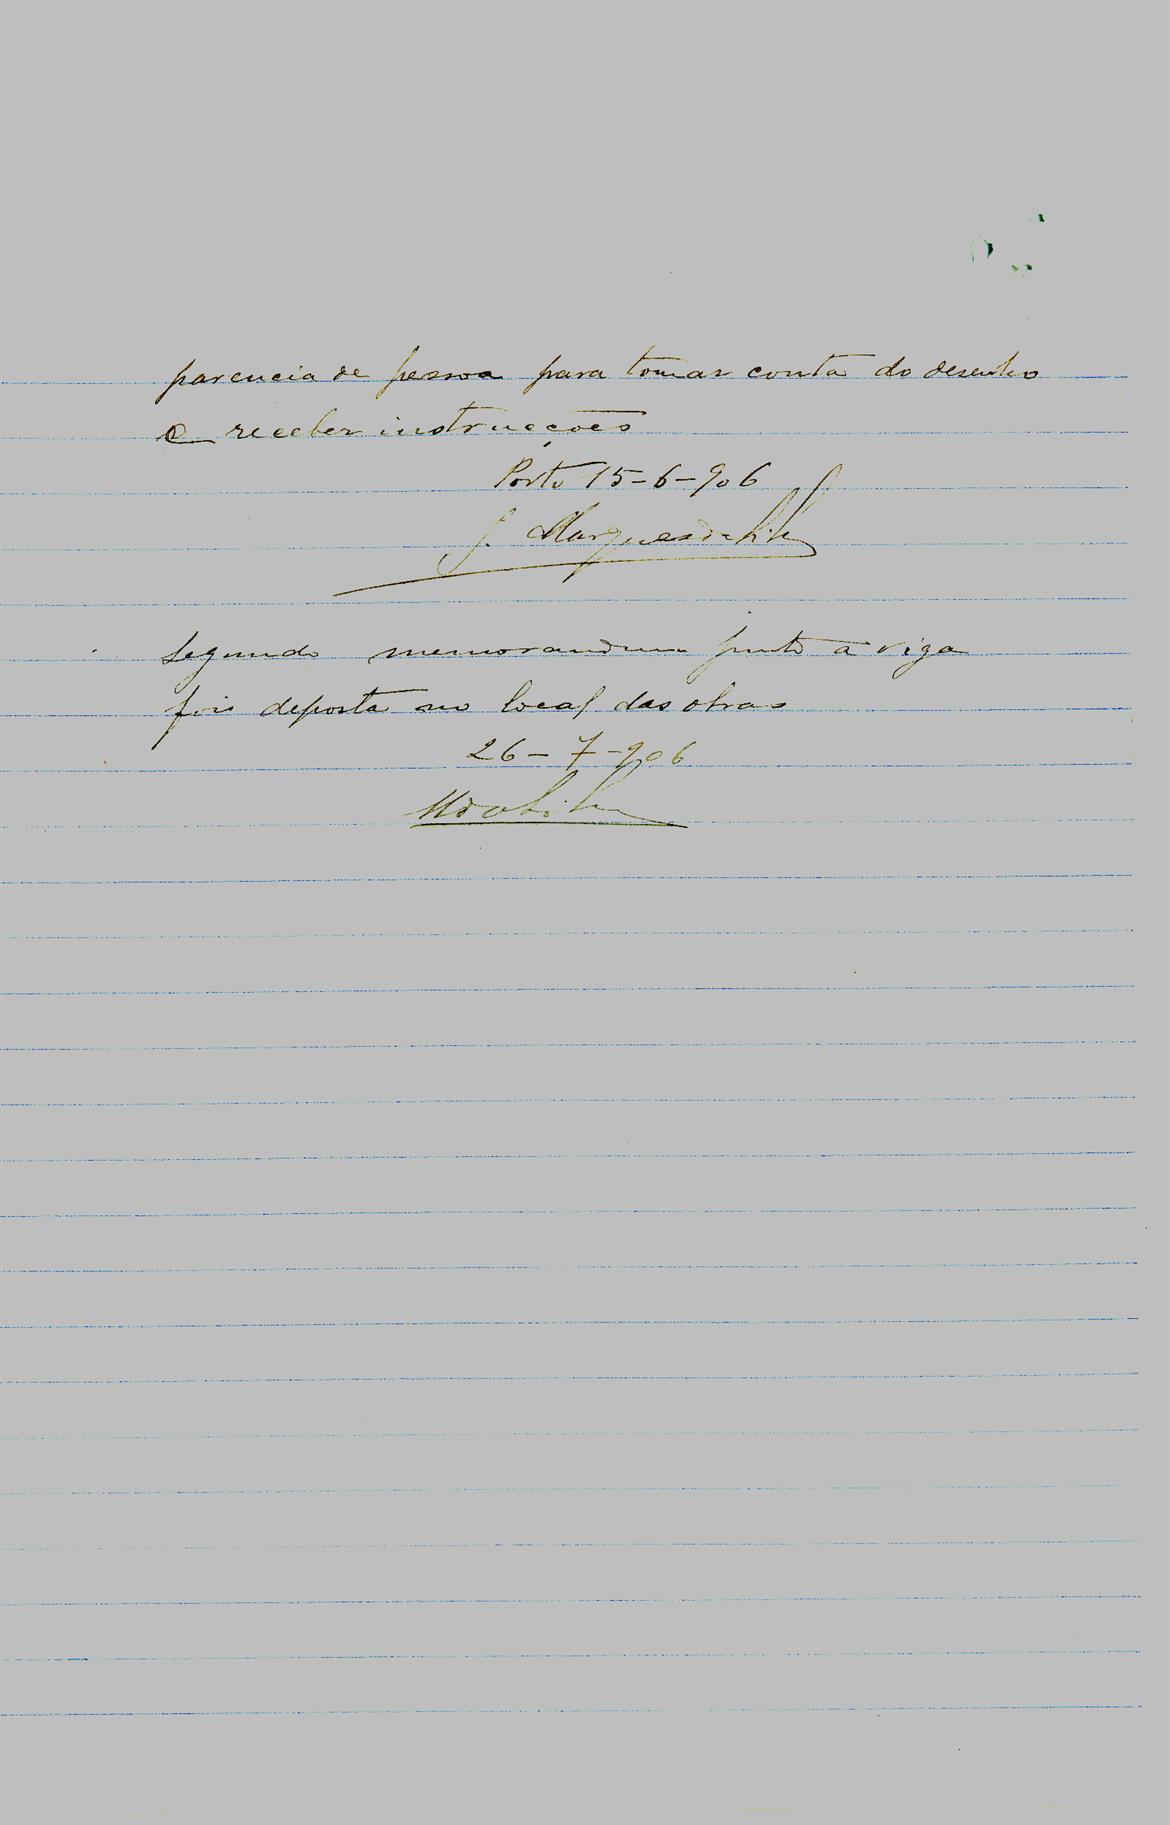 parencia de pessoa para tomar conta do desenho
e receber instrucções
Porto 15-6-906
J. Marques da Silva
Segundo memorandum junto a viga
foi deposta no local das obras
26-7-906
M da Silva